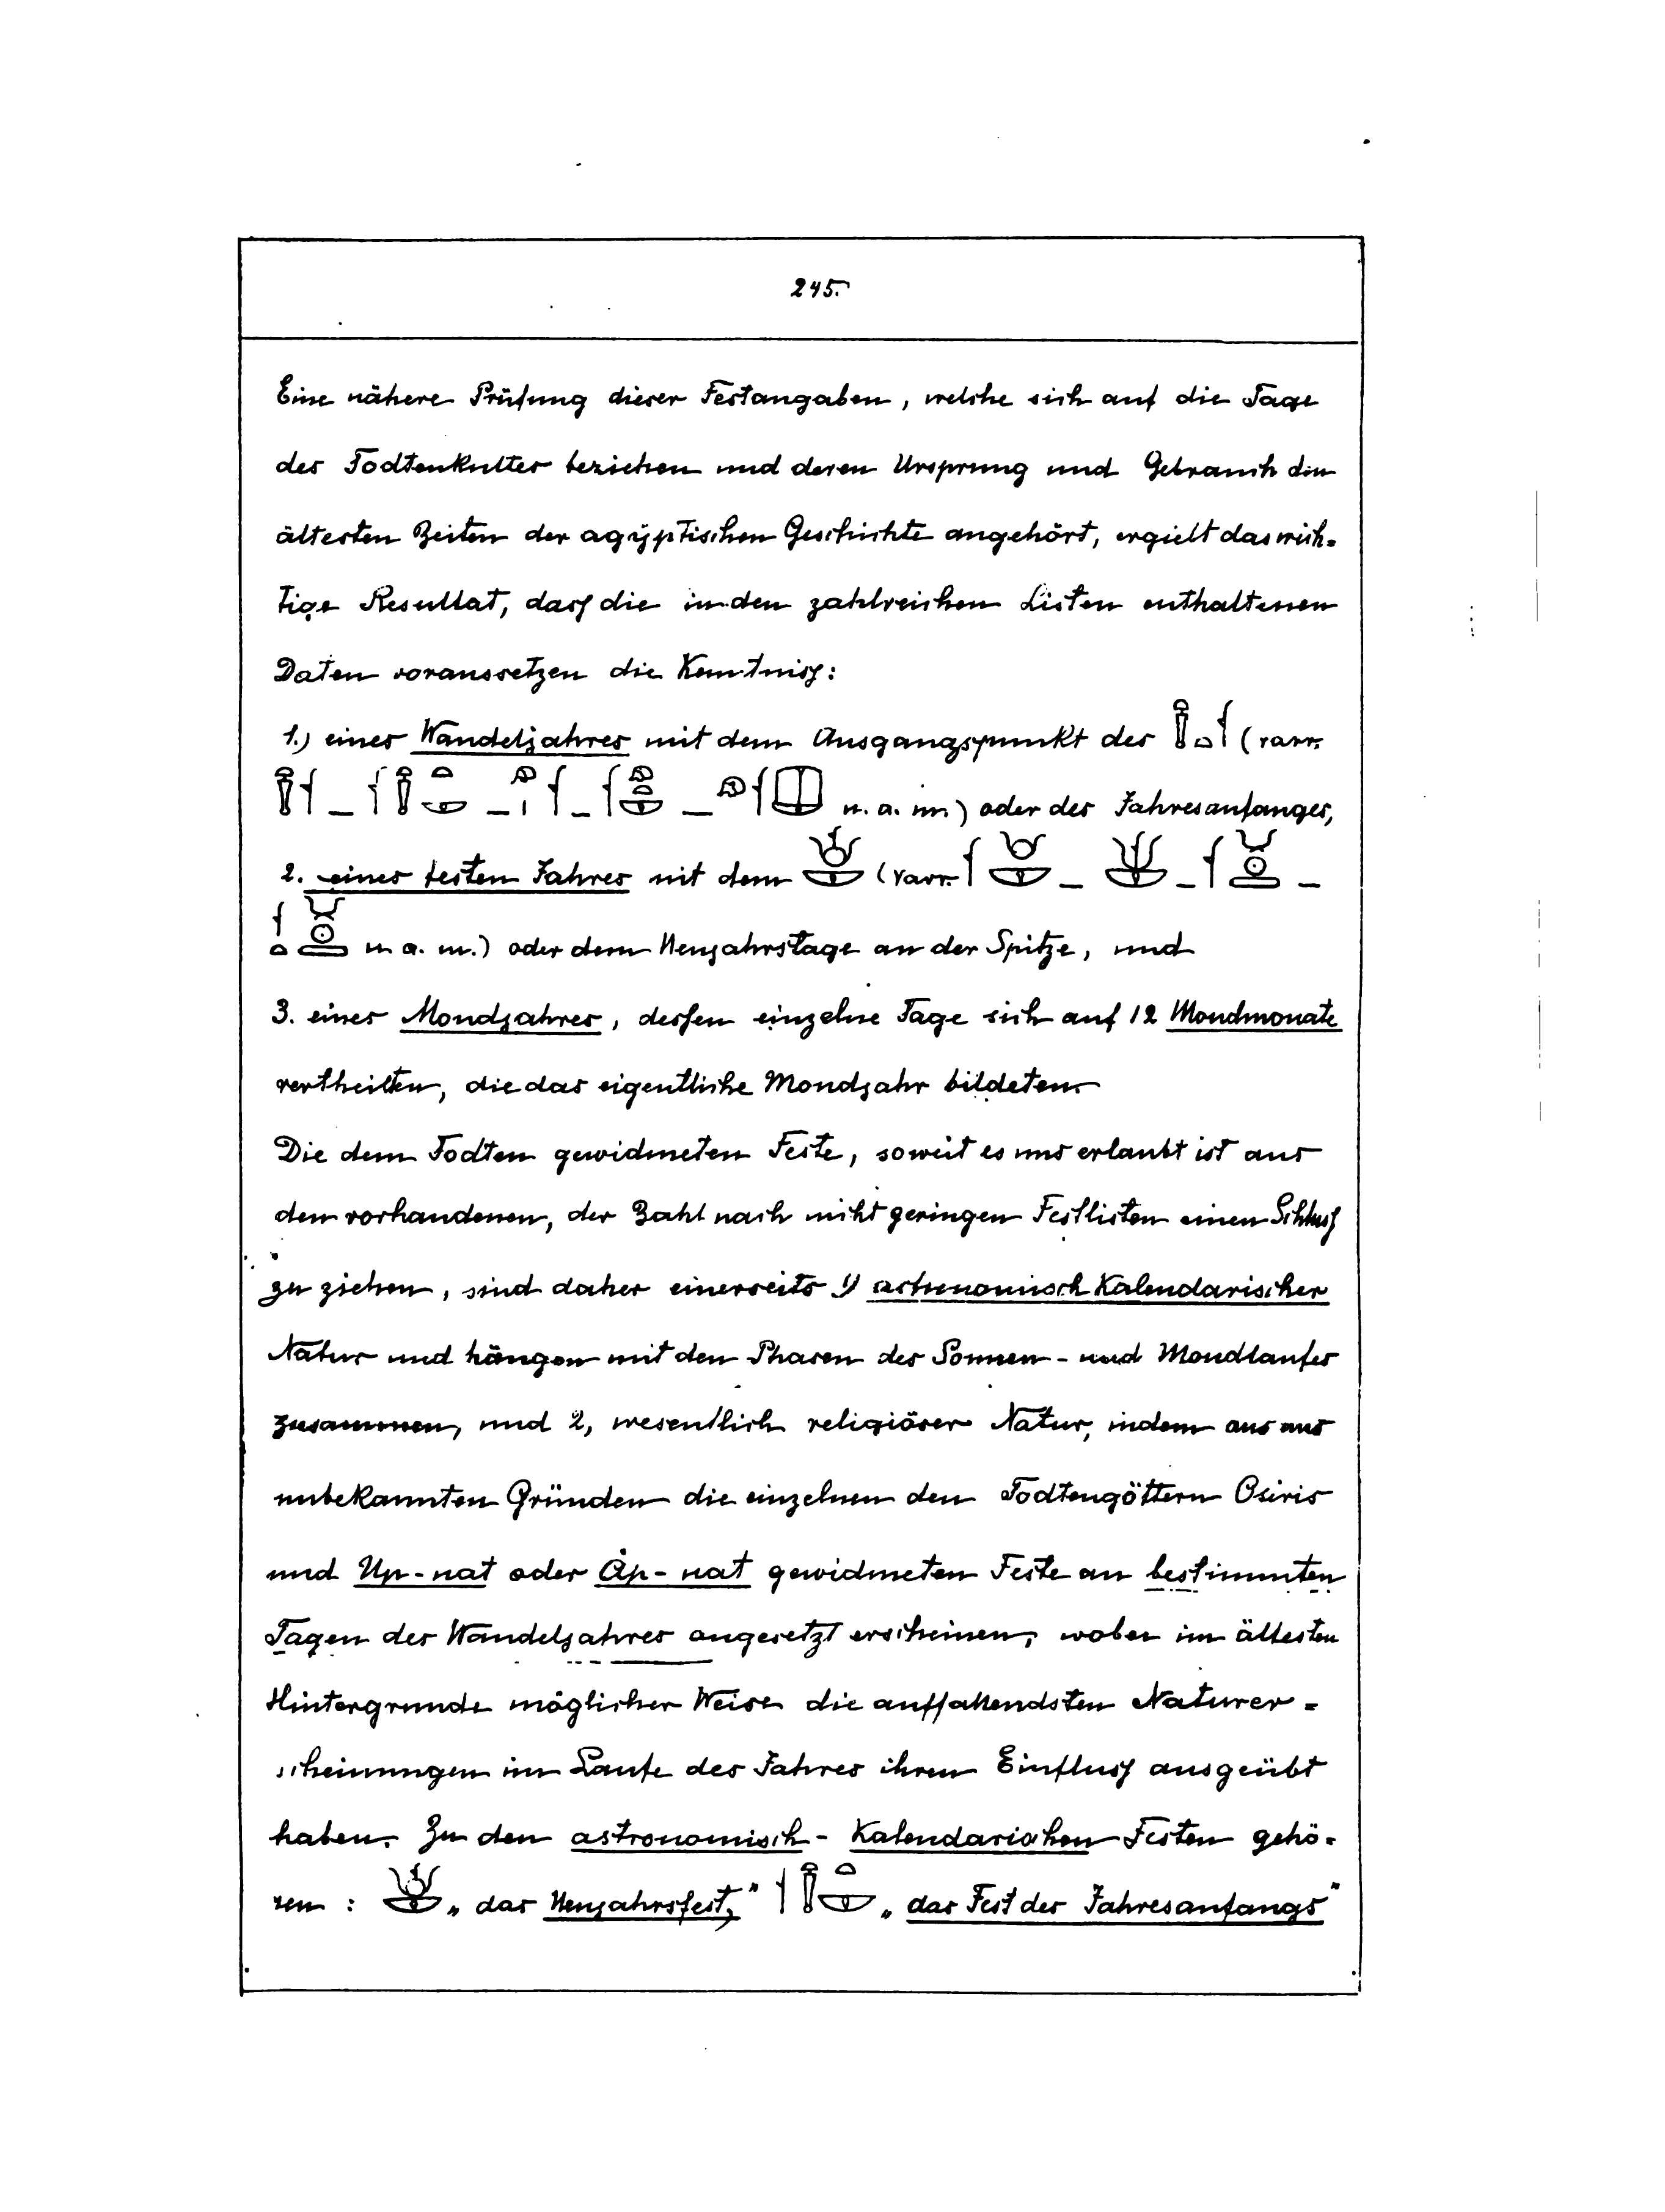 245.
Eine nähere Prüfung dieser Festangaben, welche sich auf die Tage
des Todtenkultes beziehen und deren Ursprung und Gebrauch den
ältesten Zeiten der agÿptischen Geschichte angehört, ergiebt das wich=
tige Resultat, daß die in den zahlreichen Listen enthaltenen
Daten voraussetzen die Kenntniß:
1.) eines Wandeljahres mit dem Ausgangspunkt des (varr.
u. a. m.) oder des Jahresanfanges,
2. eines festen Jahres mit dem (varr.
u. a. m.) oder dem Neujahrstage an der Spitze, und
3. eines Mondjahres, dessen einzelne Tage sich auf 12 Mondmonate
vertheilten, die das eigentliche Mondjahr bildeten.
Die dem Todten gewidmeten Feste, soweit es uns erlaubt ist aus
den vorhandenen, der Zahl nach nicht geringen Festlisten einen Schluß
zu ziehen, sind daher einerseits 1) astronomisch Kalendarischer
Natur und hängen mit den Phasen des Sonnen- und Mondlaufes
zusammen, und 2, wesentlich religiöser Natur, indem aus uns
unbekannten Gründen die einzelnen den Todtengöttern Osiris
und Up-uat oder Åp-uat gewidmeten Feste an bestimmten
Tagen des Wandeljahres angesetzt erscheinen, wobei im ältesten
Hintergrunde möglicher Weise die auffallendsten Naturer=
scheinungen im Laufe des Jahres ihren Einfluß ausgeübt
haben. Zu den astronomisch- Kalendarischen Festen gehö=
ren : „das Neujahrsfest," „das Fest des Jahresanfangs"